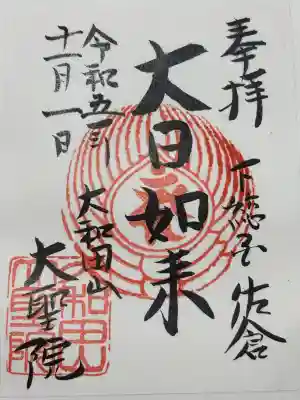 奉拝
下総國 佐倉
大日如来
大和田山
大聖院
令和五年
十一月一日